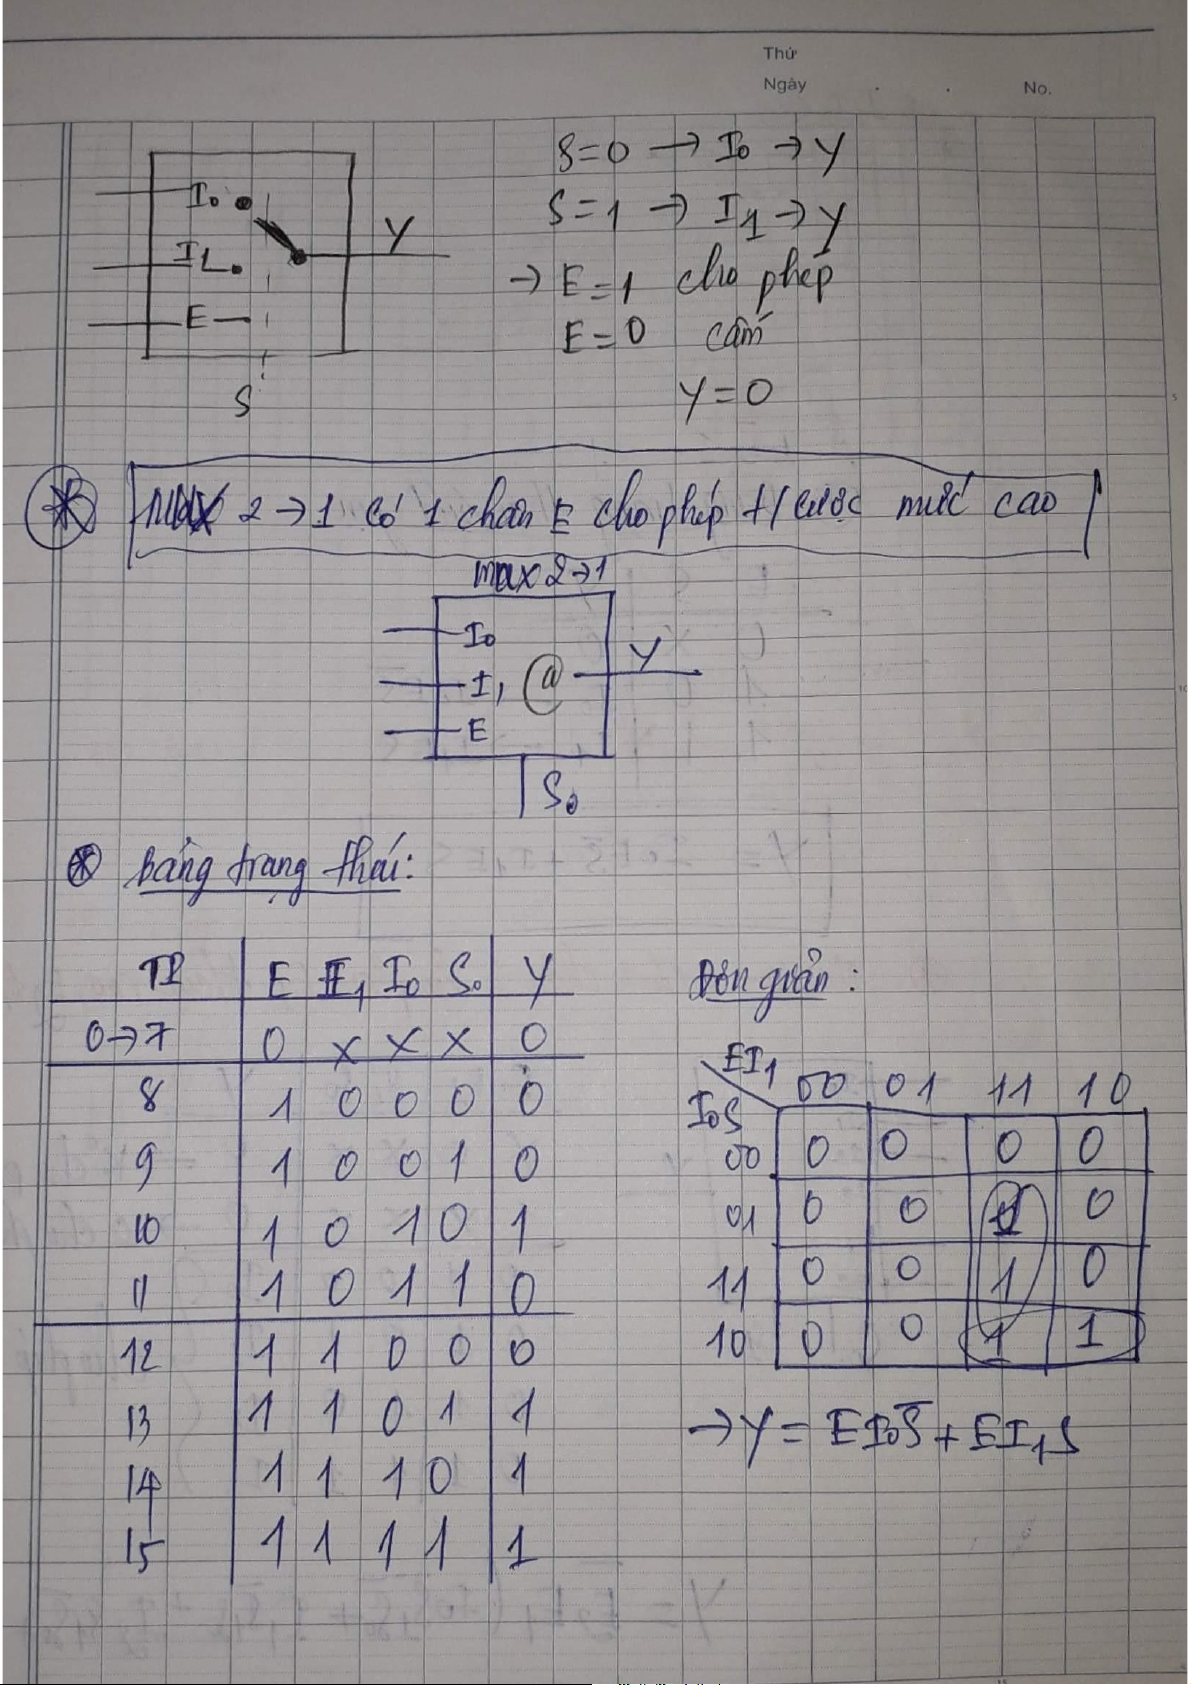 Thứ
Ngày . . No.
I₀
I1
E
S
Y
S=0 → I₀ → Y
S=1 → I1 → Y
→ E=1 cho phép
E=0 cấm
Y=0
MUX 2→1 có 1 chân E cho phép t/c mức cao
mux 2→1
I₀
I₁
E
Y
S₀
bảng trạng thái:
TP E I₁ I₀ S₀ Y
0→7 0 x x x 0
8 1 0 0 0 0
9 1 0 0 1 0
10 1 0 1 0 1
11 1 0 1 1 0
12 1 1 0 0 0
13 1 1 0 1 1
14 1 1 1 0 1
15 1 1 1 1 1
Đơn giản:
EI₁ 00 01 11 10
I₀S
00 0 0 0 0
01 0 0 1 0
11 0 0 1 0
10 0 0 1 1
→ Y = EI₀S̅ + EI₁S